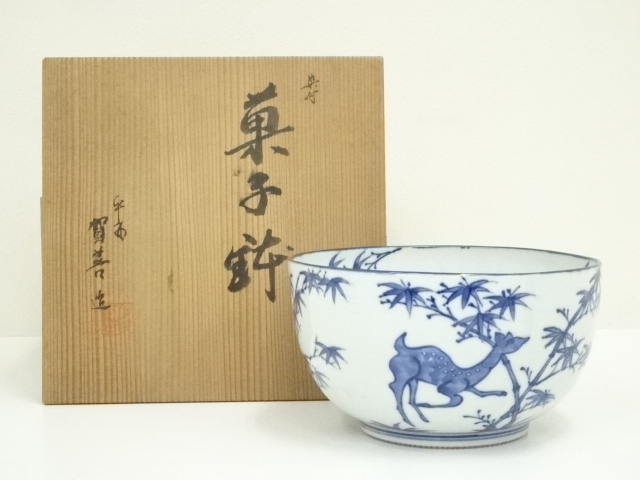 染付
菓子鉢
平安
賀善造